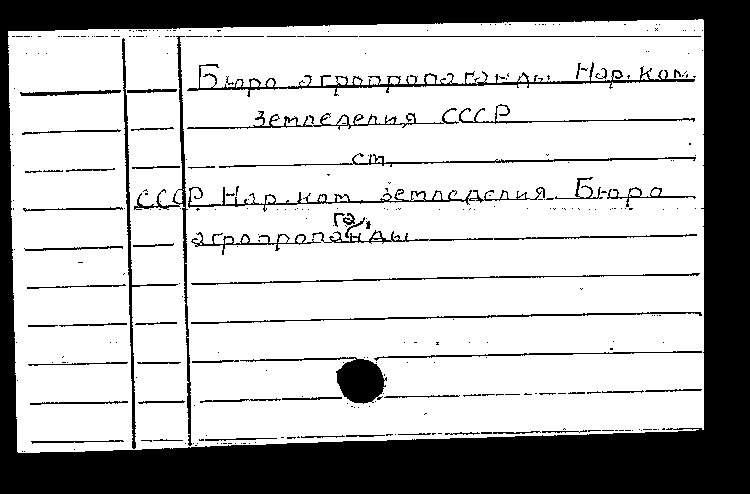 Бюро агропропаганды Нар. ком.
земледелия СССР
ст.
СССР Нар. ком. земледелия. Бюро
агропропаганды